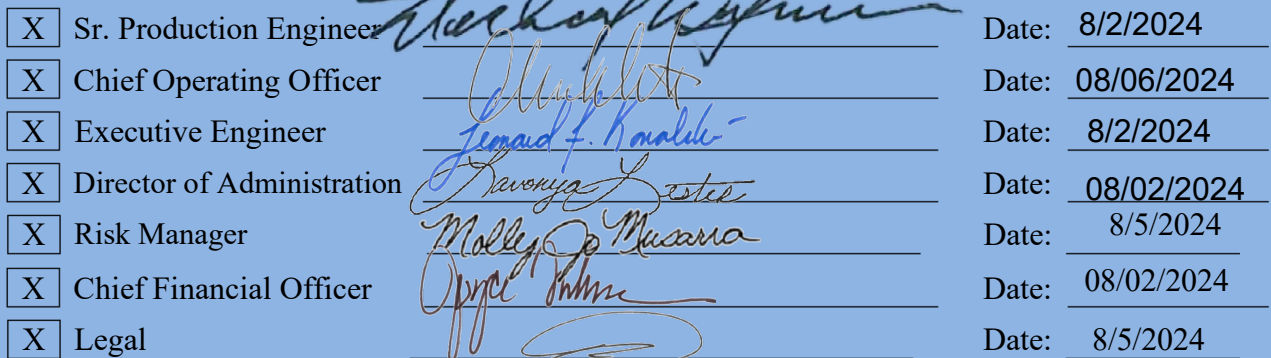 X Sr. Production Engineer Date: 8/2/2024
X Chief Operating Officer Date: 08/06/2024
X Executive Engineer Leonard F. Date: 8/2/2024
X Director of Administration Lavonya Lester Date: 08/02/2024
X Risk Manager Molly Jo Musarra Date: 8/5/2024
X Chief Financial Officer Date: 08/02/2024
X Legal Date: 8/5/2024